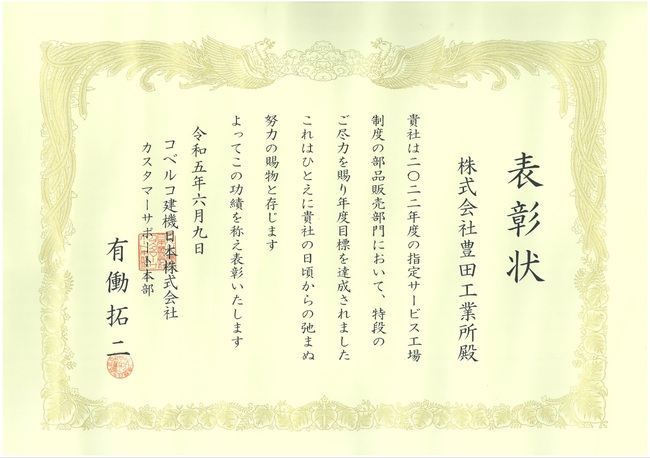 表彰状
株式会社豊田工業所殿
貴社は二〇二二年度の指定サービス工場
制度の部品販売部門において、特段の
ご尽力を賜り年度目標を達成されました
これはひとえに貴社の日頃からの弛まぬ
努力の賜物と存じます
よってこの功績を称え表彰いたします
令和五年六月九日
コベルコ建機日本株式会社
カスタマーサポート本部
有働拓二